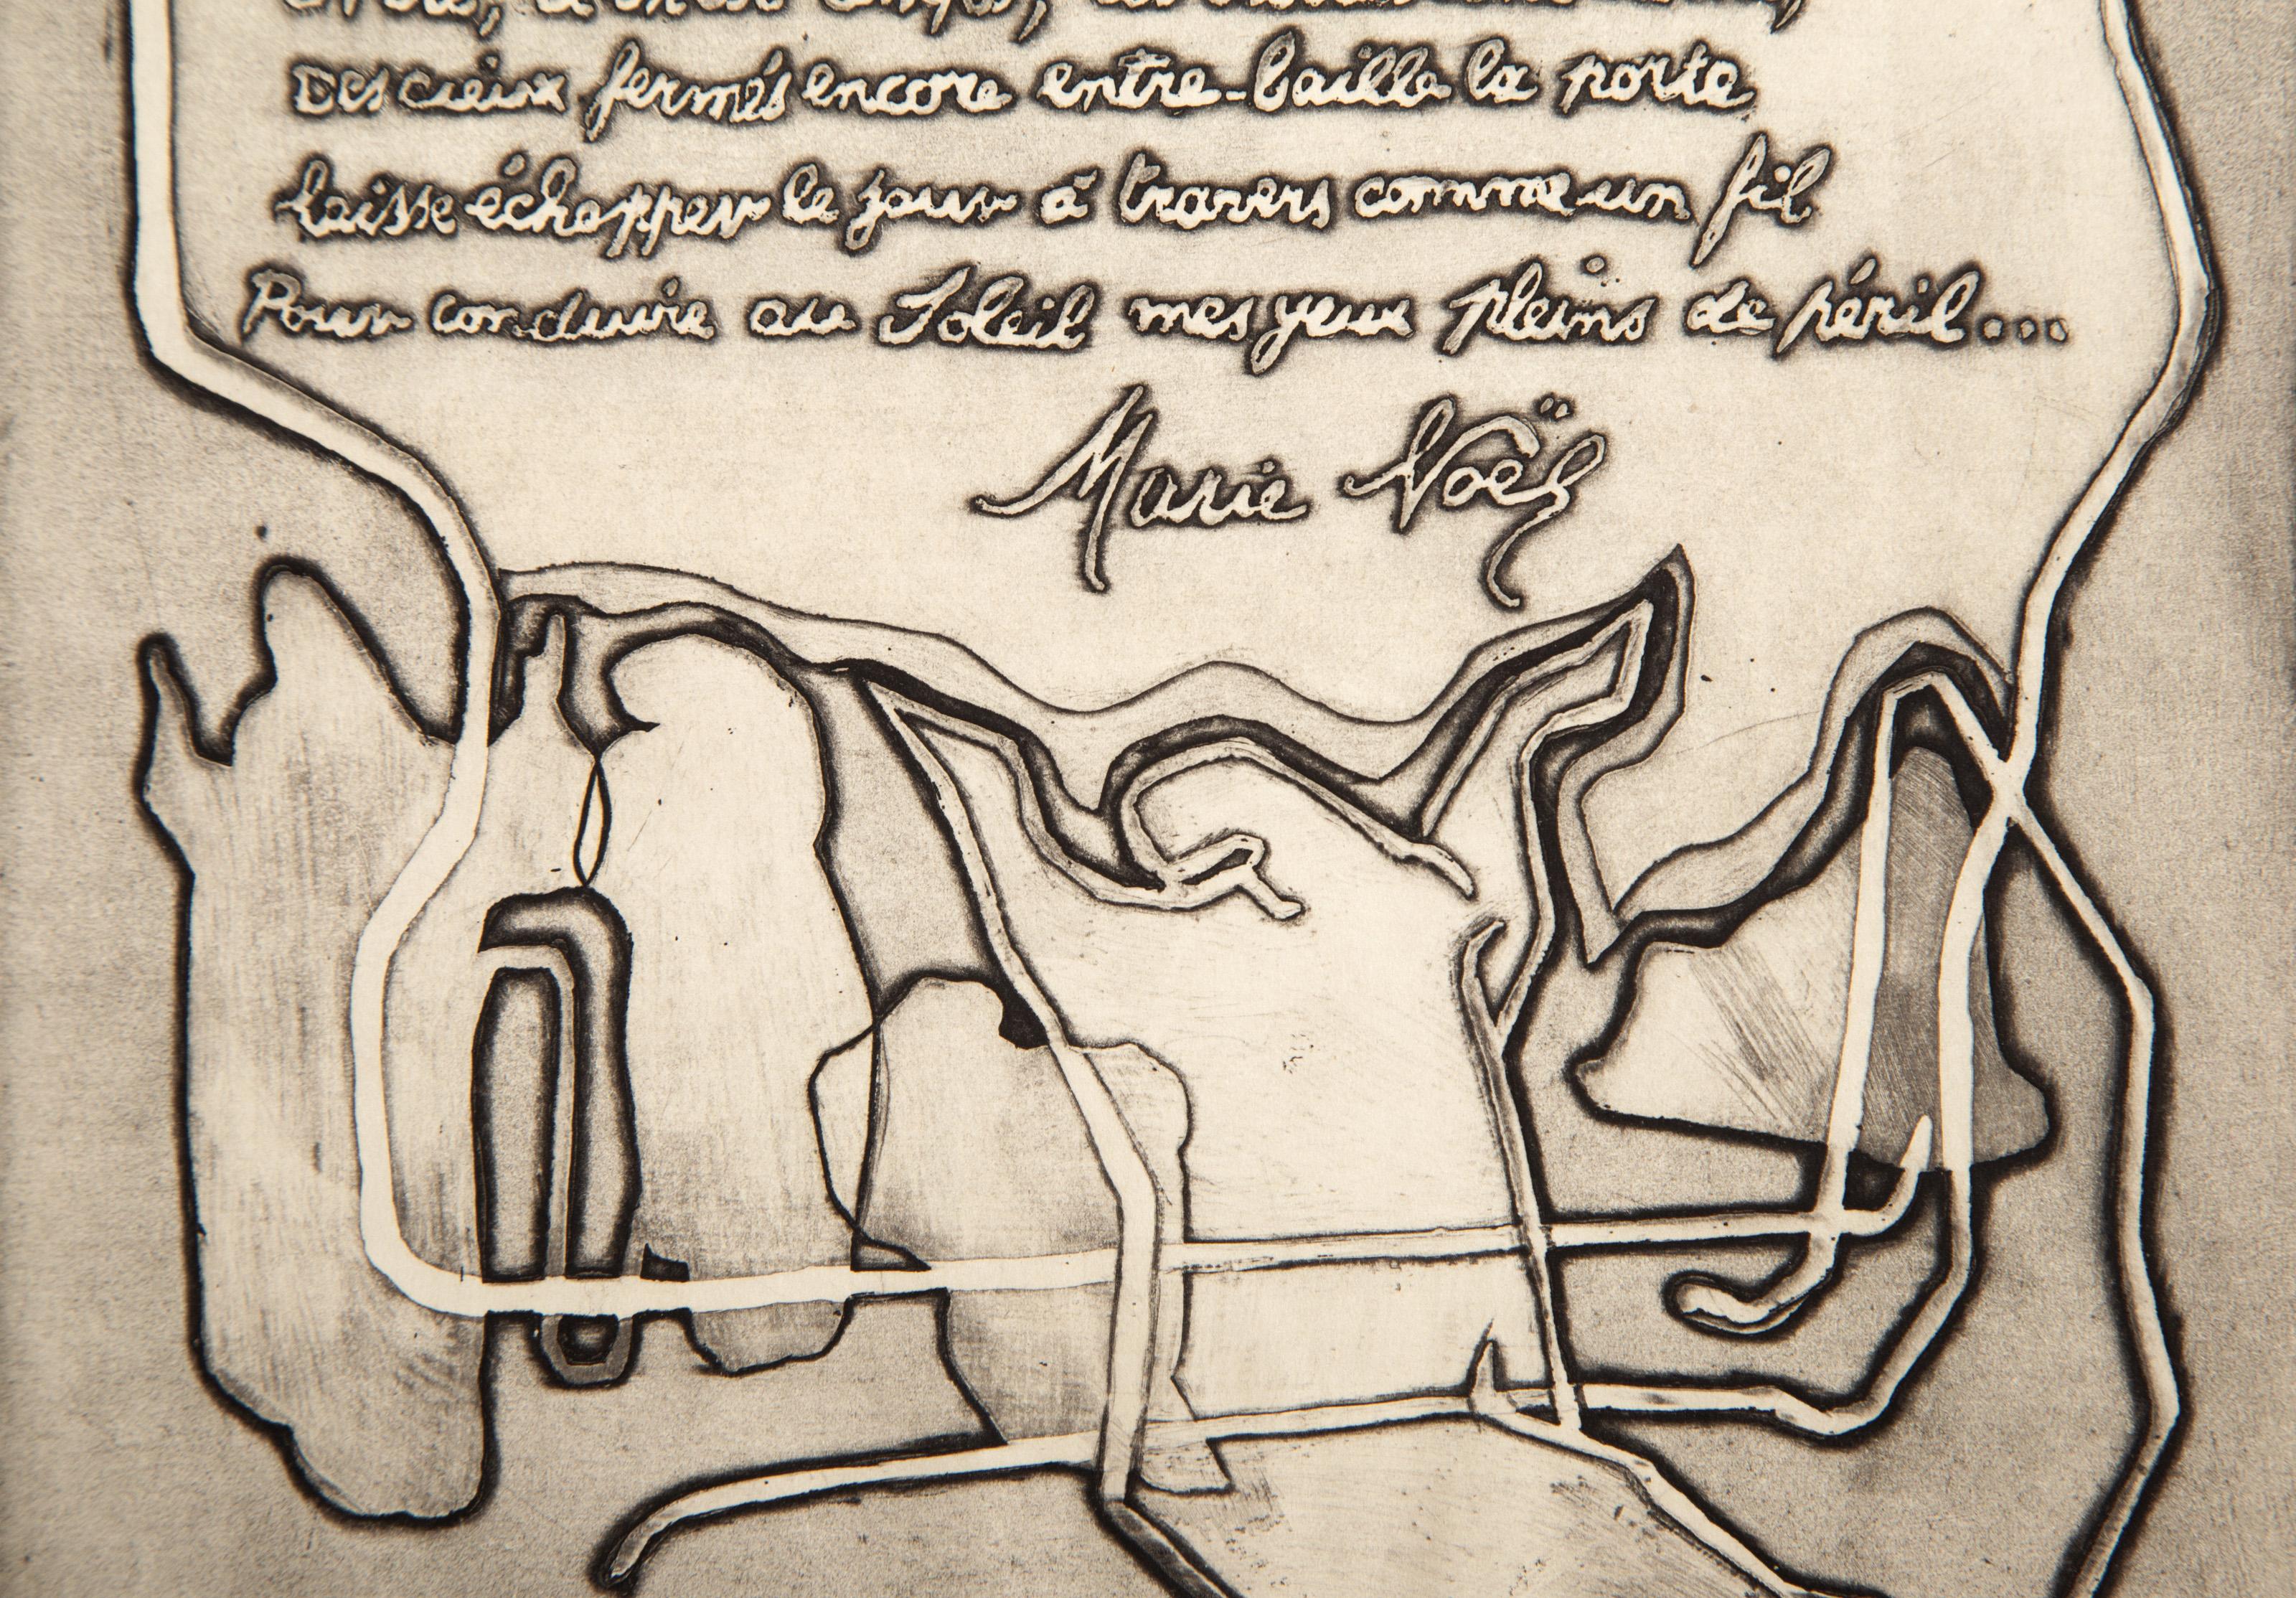 Des cieux fermés encore entre-baille la porte
laisse échapper le jour à travers comme un fil
Pour conduire au Soleil mes yeux pleins de péril...
Marie Noël